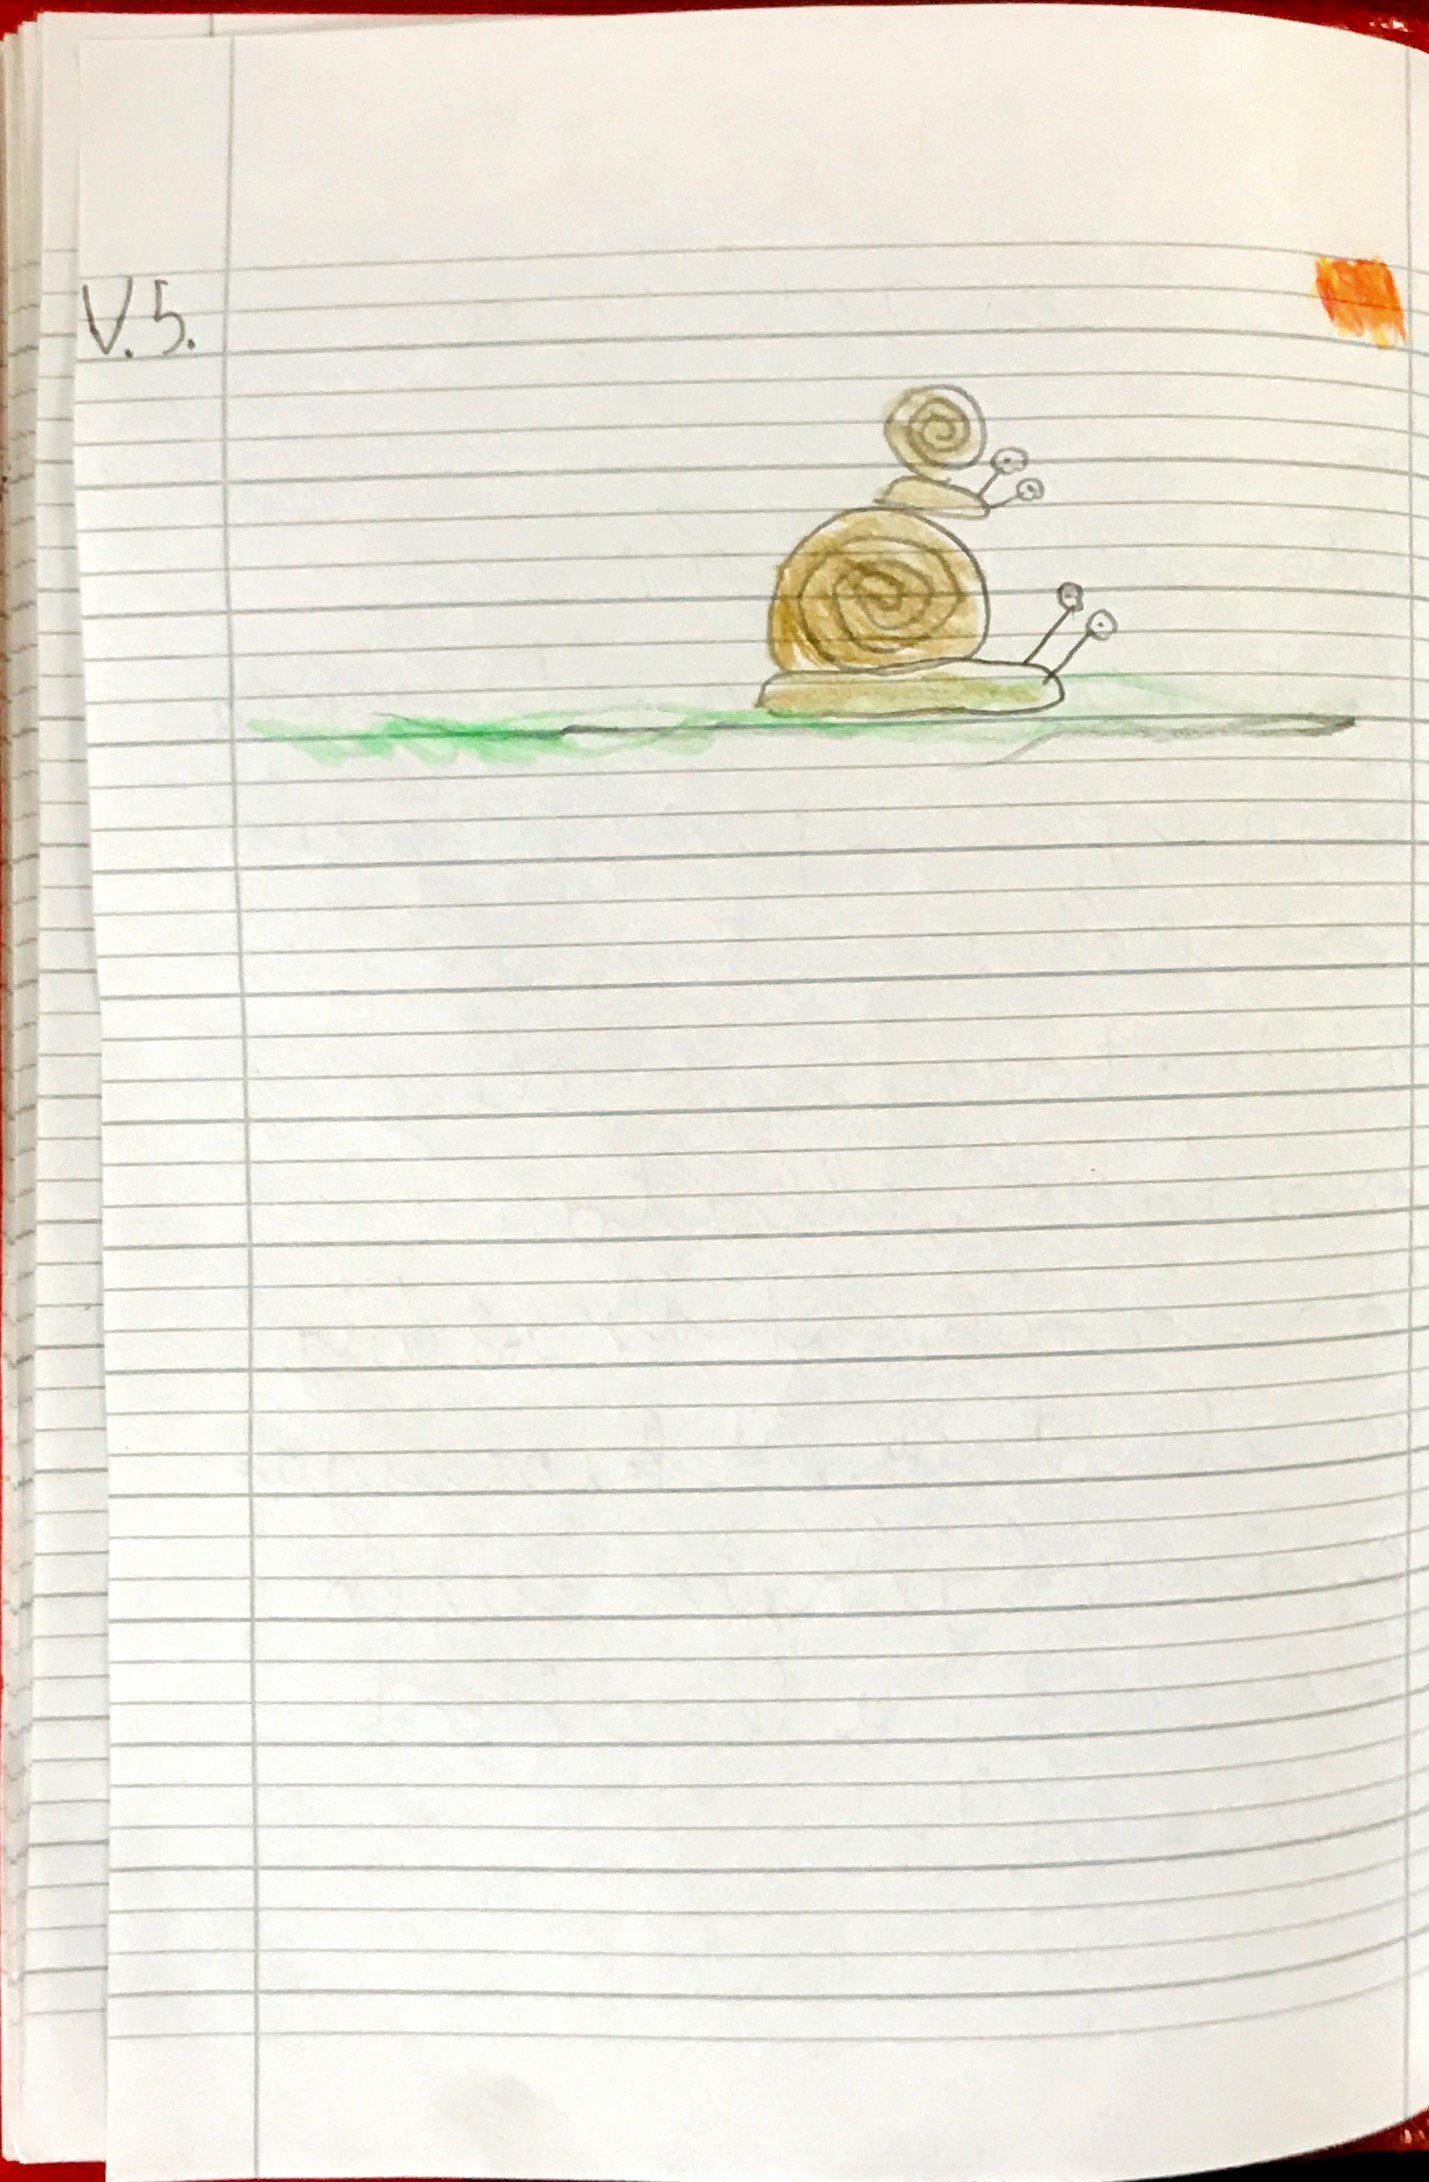 V. 5.